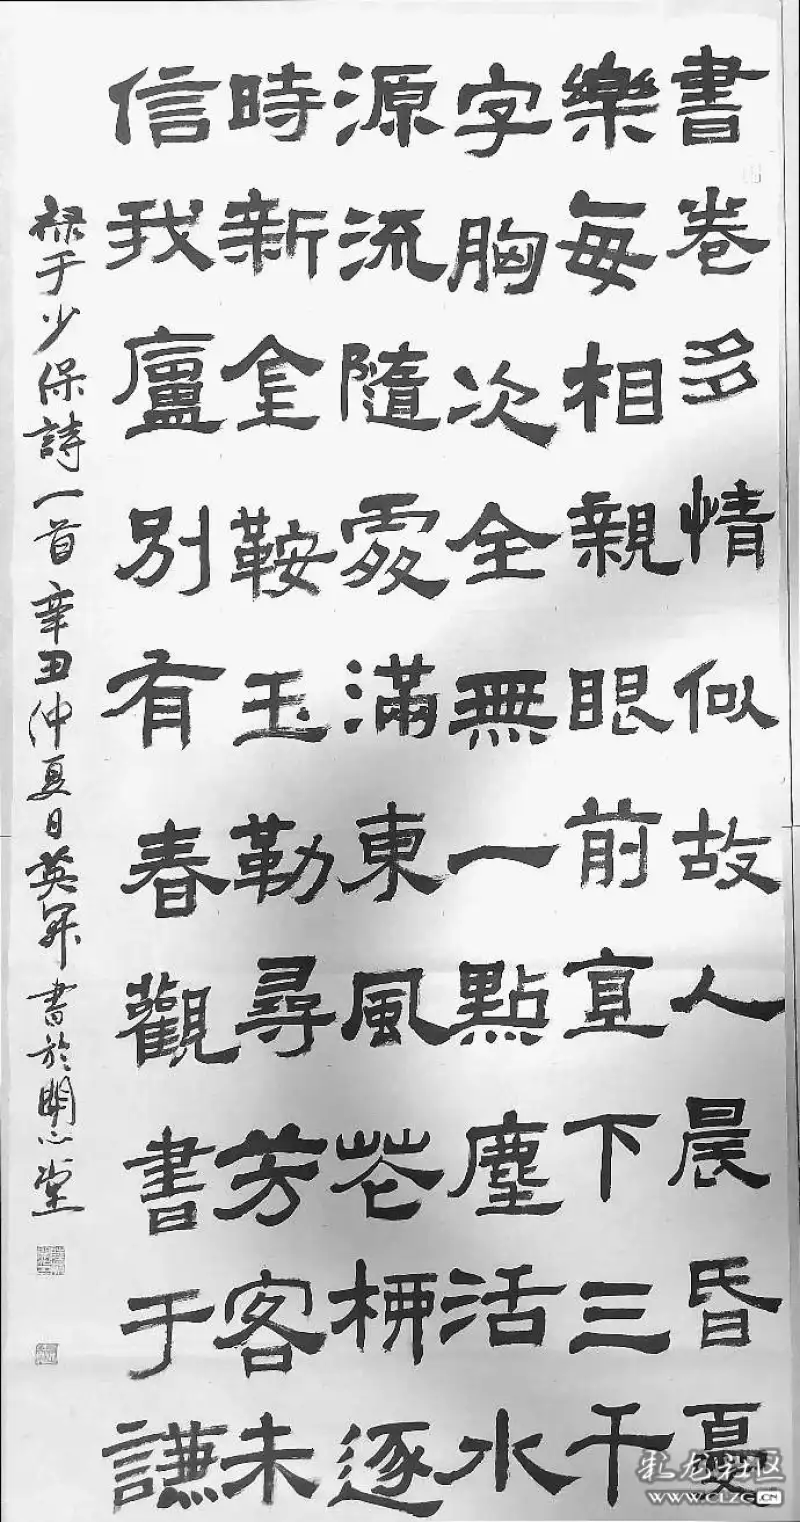 書卷多情似故人晨昏憂
樂每相親眼前直下三千
字胸次全無一點塵活水
源流隨處滿東風花柳逐
時新金鞍玉勒尋芳客未
信我廬別有春觀書于謙
禄于少保詩一首辛丑仲夏日英書於開心堂
社区